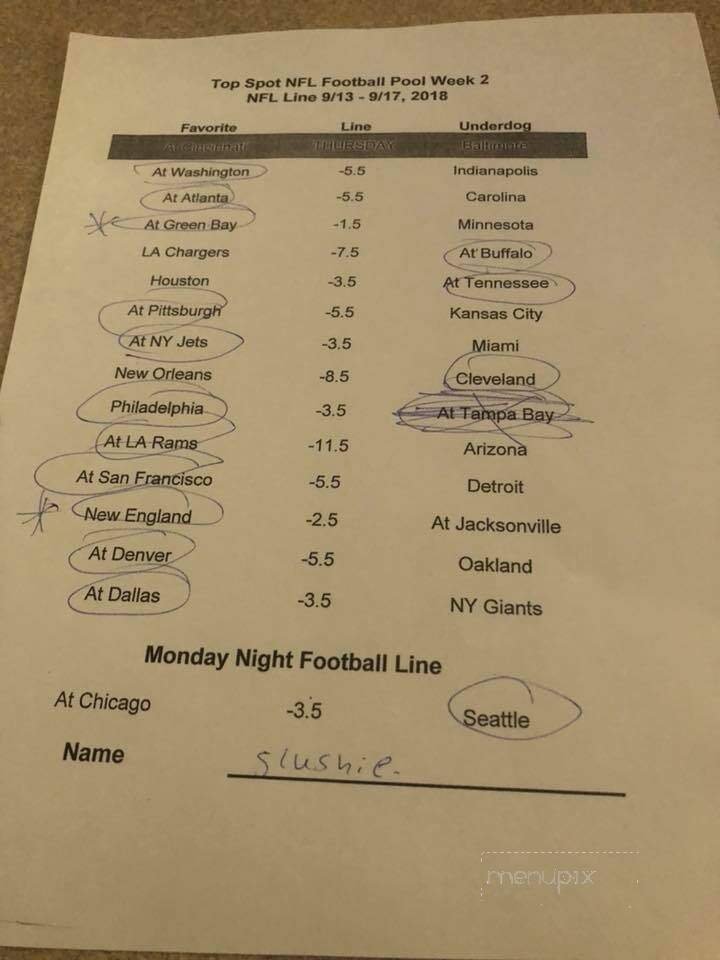 Top Spot NFL Football Pool Week 2
NFL Line 9/13 - 9/17, 2018
Favorite Line Underdog
At Cincinnati THURSDAY Baltimore
At Washington -5.5 Indianapolis
At Atlanta -5.5 Carolina
At Green Bay -1.5 Minnesota
LA Chargers -7.5 At Buffalo
Houston -3.5 At Tennessee
At Pittsburgh -5.5 Kansas City
At NY Jets -3.5 Miami
New Orleans -8.5 Cleveland
Philadelphia -3.5 At Tampa Bay
At LA Rams -11.5 Arizona
At San Francisco -5.5 Detroit
New England -2.5 At Jacksonville
At Denver -5.5 Oakland
At Dallas -3.5 NY Giants
Monday Night Football Line
At Chicago -3.5 Seattle
Name slushie.
menupix